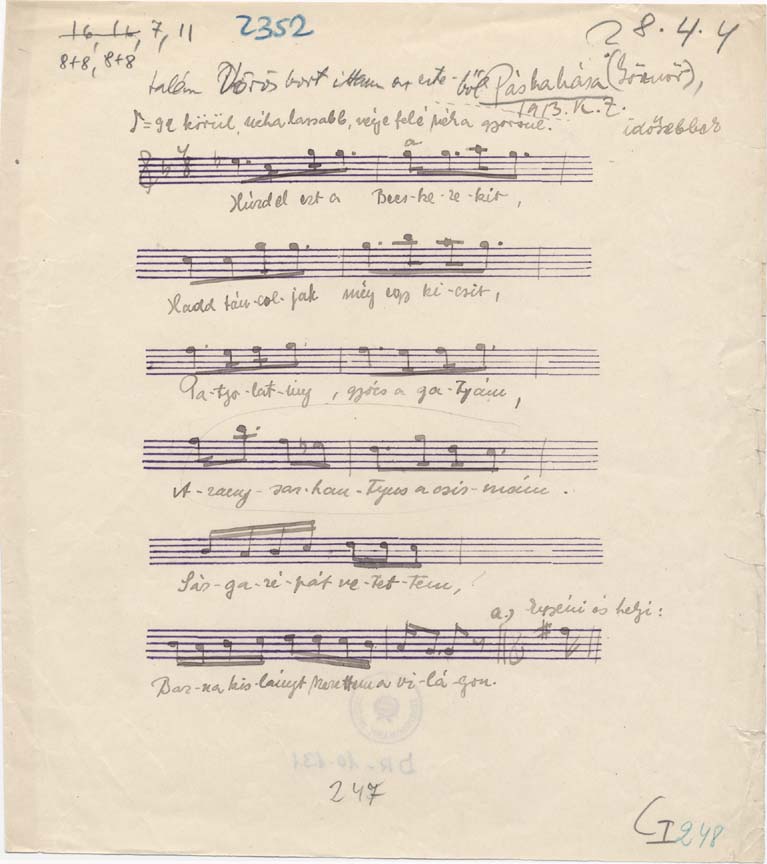 16 16, 7, 11 2352 28.4.4
8+8, 8+8
talán Vörös bort ittam az este-ből Páskaháza (Gömör),
1913. K. Z.
♪=92 körül, néha lassabb, vége felé néha gyorsul. időseber
a
Húzd el ezt a Becs-ke-re-kit,
Hadd tán-col-jak még egy ki-csit,
Pa-tyo-lat-ing, gyócs a ga-tyám,
A-rany-sar-kan-tyus a csiz-mám.
Sár-ga-ré-pát ve-tet-tem,
a.) és helyi:
Bar-na kis-lányt szerettem a vi-lá-gon.
247
CI 248